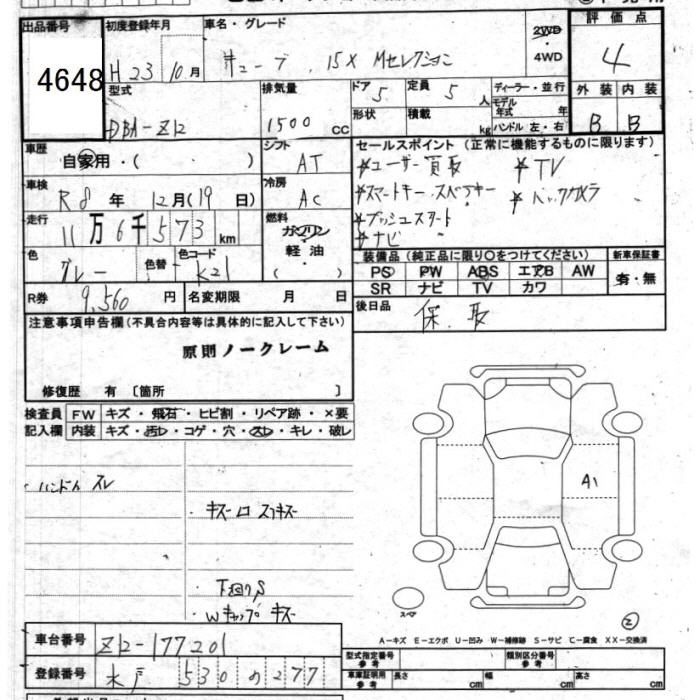 出品番号 初度登録年月 車名・グレード 評価点
4648 H 23 10 月 キューブ 15X Mセレクション 2WD 4WD 4
型式 排気量 ドア 5 定員 5 人 ディーラー・並行 外装 内装
DBA-Z12 1500 cc 形状 積載 kg モデル年式 年 ハンドル 左・右 B B
車歴 自家用・( ) シフト AT セールスポイント(正常に機能するものに限ります)
*ユーザー買取 *TV
車検 R8 年 12 月 (19 日) 冷房 AC *スマートキー.スペアキー *バックカメラ
走行 11 万 6 千 573 km 燃料 ガソリン 軽油 ( ) *プッシュスタート
*ナビ
色 グレー 色替 色コード K21 装備品(純正品に限り○をつけてください) 新車保証書
PS PW ABS エアB AW 有・無
SR ナビ TV カワ
R券 9,560 円 名変期限 月 日 後日品 保.取
注意事項申告欄(不具合内容等は具体的に記入して下さい)
原則ノークレーム
修復歴 有 〔箇所 〕
検査員 FW キズ・飛石・ヒビ割・リペア跡・×要
記入欄 内装 キズ・汚レ・コゲ・穴・スレ・キレ・破レ
・ハンドル スレ
A1
・下廻りS
・Wキャップ キズ
スペア
2
A-キズ E-エクボ U-凹み W-補修跡 S-サビ C-腐食 XX-交換済
車台番号 Z12-177201 型式指定番号 参考 類別区分番号 参考
登録番号 水戸 530 の 277 車庫証明用 参考 長さ cm 幅 cm 高さ cm